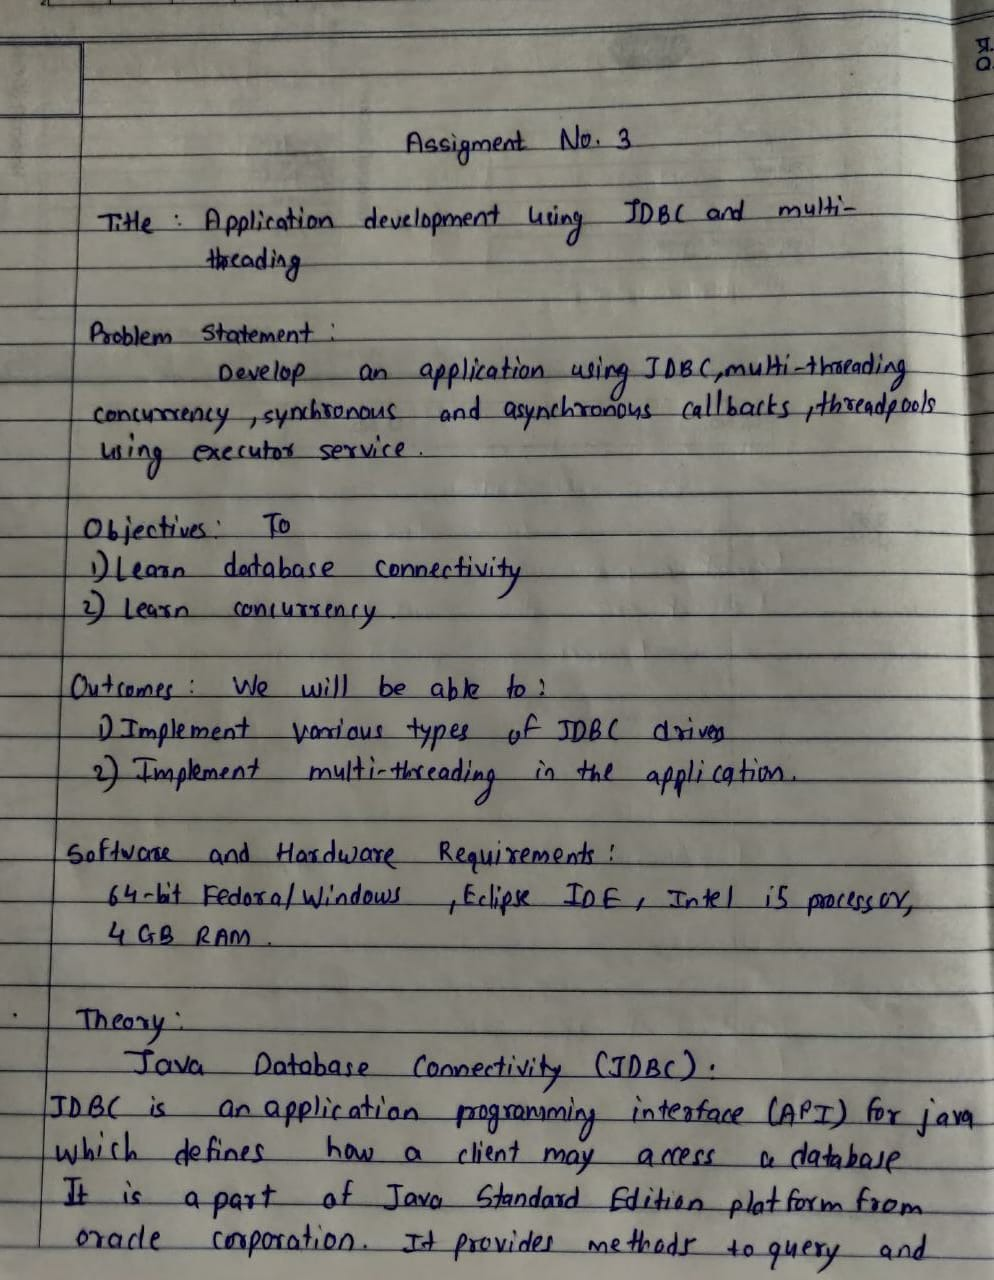 प्र.
Q.
Assigment No. 3
Title : Application development using JDBC and multi-
threading
Problem Statement :
Develop an application using JDBC, multi-threading
concurrency, synchronous and asynchronous callbacks, threadpools
using executor service.
Objectives : To
1) Learn database connectivity
2) Learn concurrency.
Outcomes : We will be able to :
1) Implement various types of JDBC drives
2) Implement multi-threading in the application.
Software and Hardware Requirements :
64-bit Fedora/Windows, Eclipse IDE, Intel i5 processor,
4 GB RAM.
Theory :
Java Database Connectivity (JDBC) :
JDBC is an application programming interface (API) for java
which defines how a client may access a database
It is a part of Java Standard Edition platform from
oracle corporation. It provides methods to query and